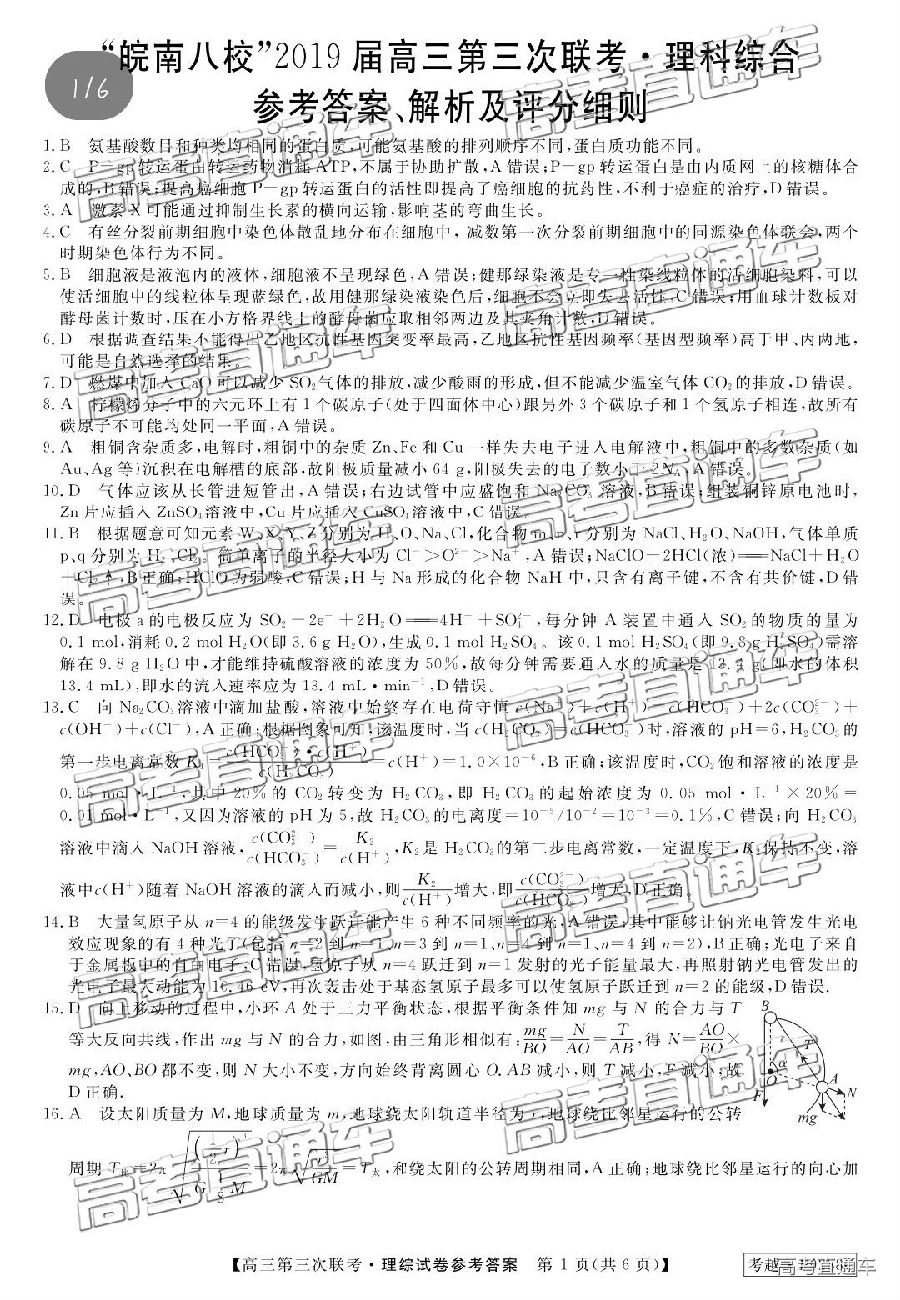 1/6
“皖南八校”2019届高三第三次联考·理科综合
参考答案、解析及评分细则
1. B 氨基酸数目和种类均相同的蛋白质,可能氨基酸的排列顺序不同,蛋白质功能不同。
2. C P-gp转运蛋白转运药物消耗ATP,不属于协助扩散,A错误;P-gp转运蛋白是由内质网上的核糖体合
成的,B错误;提高癌细胞P-gp转运蛋白的活性即提高了癌细胞的抗药性,不利于癌症的治疗,D错误。
3. A 激素X可能通过抑制生长素的横向运输,影响茎的弯曲生长。
4. C 有丝分裂前期细胞中染色体散乱地分布在细胞中,减数第一次分裂前期细胞中的同源染色体联会,两个
时期染色体行为不同。
5. B 细胞液是液泡内的液体,细胞液不呈现绿色,A错误;健那绿染液是专一性染线粒体的活细胞染料,可以
使活细胞中的线粒体呈现蓝绿色,故用健那绿染液染色后,细胞不会立即失去活性,C错误;用血球计数板对
酵母菌计数时,压在小方格界线上的酵母菌应取相邻两边及其夹角计数,D错误。
6. D 根据调查结果不能得出乙地区抗性基因突变率最高,乙地区抗性基因频率(基因型频率)高于甲、丙两地,
可能是自然选择的结果。
7. D 燃煤中加入CaO可以减少SO₂气体的排放,减少酸雨的形成,但不能减少温室气体CO₂的排放,D错误。
8. A 柠檬烯分子中的六元环上有1个碳原子(处于四面体中心)跟另外3个碳原子和1个氢原子相连,故所有
碳原子不可能均处同一平面,A错误。
9. A 粗铜含杂质多,电解时,粗铜中的杂质Zn、Fe和Cu一样失去电子进入电解液中,粗铜中的多数杂质(如
Au、Ag等)沉积在电解槽的底部,故阳极质量减小64 g,阳极失去的电子数小于2Nₐ,A错误。
10. D 气体应该从长管进短管出,A错误;右边试管中应盛饱和Na₂CO₃溶液,B错误;组装铜锌原电池时,
Zn片应插入ZnSO₄溶液中,Cu片应插入CuSO₄溶液中,C错误。
11. B 根据题意可知元素W、X、Y、Z分别为H、O、Na、Cl,化合物m、n、r分别为NaCl、H₂O、NaOH,气体单质
p、q分别为H₂、Cl₂。简单离子的半径大小为Cl⁻>O²⁻>Na⁺,A错误;NaClO+2HCl(浓)══NaCl+H₂O
+Cl₂↑,B正确;HClO为弱酸,C错误;H与Na形成的化合物NaH中,只含有离子键,不含有共价键,D错
误。
12. D 电极a的电极反应为SO₂-2e⁻+2H₂O══4H⁺+SO₄²⁻,每分钟A装置中通入SO₂的物质的量为
0.1 mol,消耗0.2 mol H₂O(即3.6 g H₂O),生成0.1 mol H₂SO₄。该0.1 mol H₂SO₄(即9.8 g H₂SO₄)需溶
解在9.8 g H₂O中,才能维持硫酸溶液的浓度为50%,故每分钟需要通入水的质量是13.4 g(即水的体积
13.4 mL),即水的流入速率应为13.4 mL·min⁻¹,D错误。
13. C 向Na₂CO₃溶液中滴加盐酸,溶液中始终存在电荷守恒c(Na⁺)+c(H⁺)=c(HCO₃⁻)+2c(CO₃²⁻)+
c(OH⁻)+c(Cl⁻),A正确;根据图象可知:该温度时,当c(H₂CO₃)=c(HCO₃⁻)时,溶液的pH=6,H₂CO₃的
第一步电离常数K₁=c(HCO₃⁻)·c(H⁺)/c(H₂CO₃)=c(H⁺)=1.0×10⁻⁶,B正确;该温度时,CO₂饱和溶液的浓度是
0.05 mol·L⁻¹,其中20%的CO₂转变为H₂CO₃,即H₂CO₃的起始浓度为0.05 mol·L⁻¹×20%=
0.01 mol·L⁻¹,又因为溶液的pH为5,故H₂CO₃的电离度=10⁻⁵/10⁻²=10⁻³=0.1%,C错误;向H₂CO₃
溶液中滴入NaOH溶液,c(CO₃²⁻)/c(HCO₃⁻)=K₂/c(H⁺),K₂是H₂CO₃的第二步电离常数,一定温度下,K₂保持不变,溶
液中c(H⁺)随着NaOH溶液的滴入而减小,则K₂/c(H⁺)增大,即c(CO₃²⁻)/c(HCO₃⁻)增大,D正确。
14. B 大量氢原子从n=4的能级发生跃迁能产生6种不同频率的光,A错误;其中能够让钠光电管发生光电
效应现象的有4种光子(包括n=2到n=1、n=3到n=1、n=4到n=1、n=4到n=2),B正确;光电子来自
于金属板中的自由电子,C错误;氢原子从n=4跃迁到n=1发射的光子能量最大,再照射钠光电管发出的
光电子最大动能为10.46 eV,再次轰击处于基态氢原子最多可以使氢原子跃迁到n=2的能级,D错误.
15. D 向上移动的过程中,小环A处于三力平衡状态,根据平衡条件知mg与N的合力与T
等大反向共线,作出mg与N的合力,如图,由三角形相似有:mg/BO=N/AO=T/AB,得N=AO/BO×
mg,AO、BO都不变,则N大小不变,方向始终背离圆心O.AB减小,则T减小,F减小;故
D正确.
B
T
O
a
A
F
mg
N
16. A 设太阳质量为M,地球质量为m,地球绕太阳轨道半径为r,地球绕比邻星运行的公转
周期T比=2π√((½r)³/(G·⅛M))=2π√(r³/GM)=T太,和绕太阳的公转周期相同,A正确;地球绕比邻星运行的向心加
【高三第三次联考·理综试卷参考答案 第1页(共6页)】
高考直通车